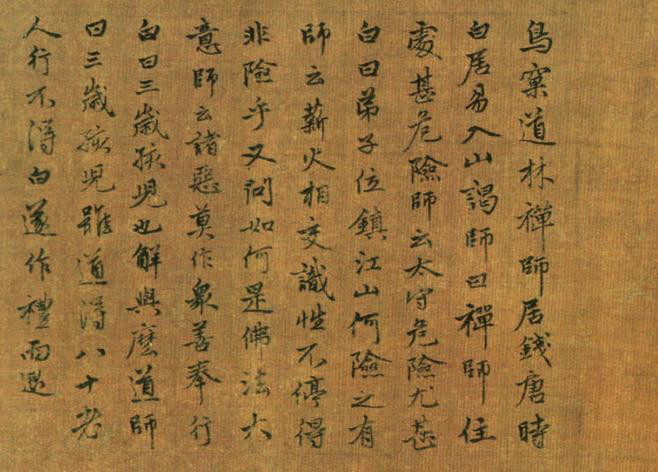 鳥窠道林禪師居錢唐時
白居易入山謁師曰禪師住
處甚危險師云太守危險尤甚
白曰弟子位鎮江山何險之有
師云薪火相交識性不停得
非險乎又問如何是佛法大
意師云諸惡莫作衆善奉行
白曰三歲孩児也解與麽道師
曰三歲孩児雖道得八十老
人行不得白遂作禮而退